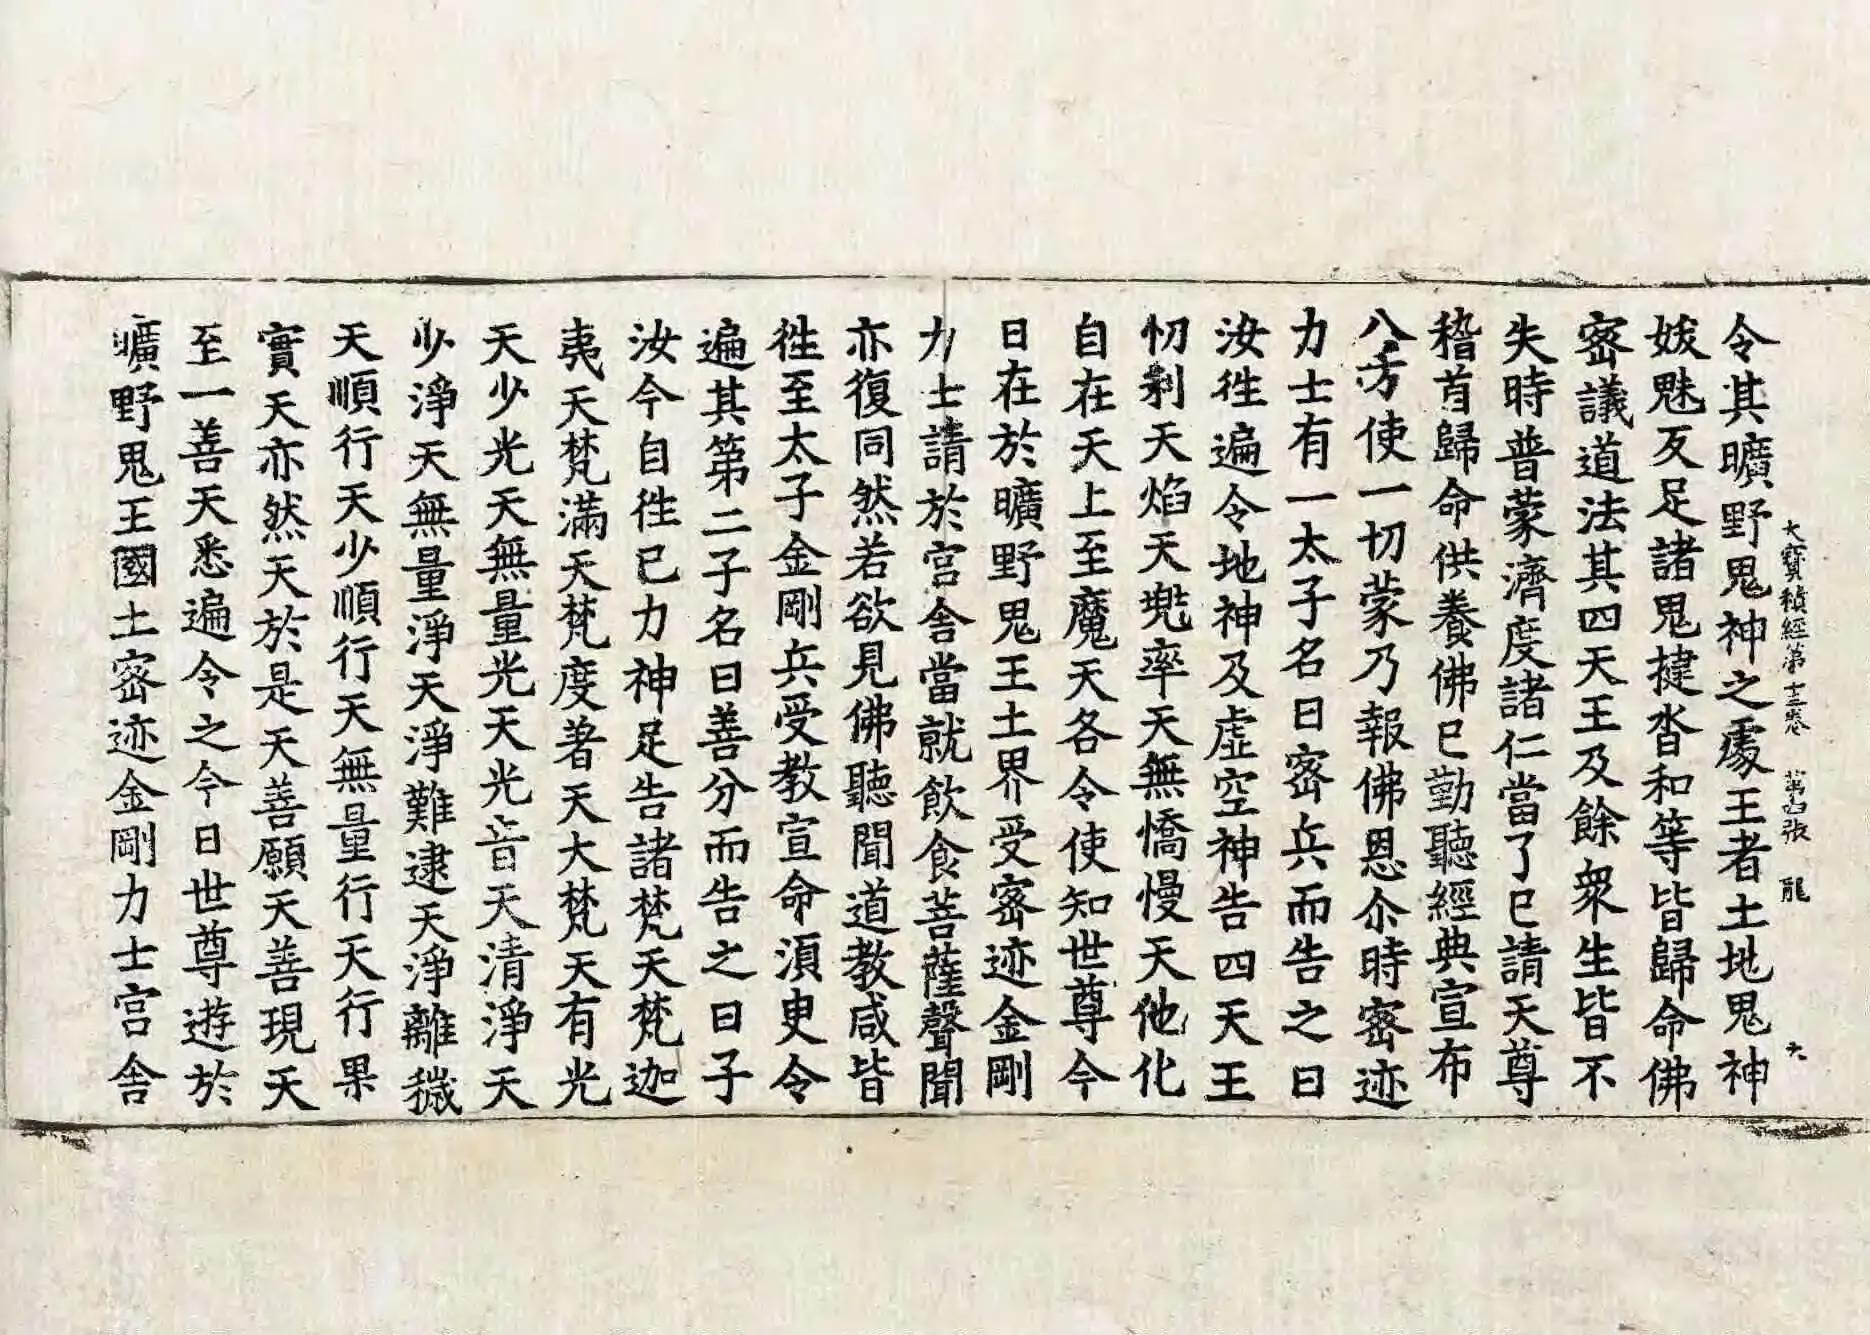 大寶積經第十三卷 第四張 龍 大
令其曠野鬼神之處王者土地鬼神
妭魅反足諸鬼揵沓和等皆歸命佛
密議道法其四天王及餘衆生皆不
失時普蒙濟度諸仁當了已請天尊
稽首歸命供養佛已勤聽經典宣布
八方使一切蒙乃報佛恩尒時密迹
力士有一太子名曰密兵而告之曰
汝徃遍令地神及虛空神告四天王
忉利天焰天兠率天無憍慢天他化
自在天上至魔天各令使知世尊今
日在於曠野鬼王土界受密迹金剛
力士請於宮舍當就飲食菩薩聲聞
亦復同然若欲見佛聽聞道教咸皆
徃至太子金剛兵受教宣命須臾令
遍其第二子名曰善分而告之曰子
汝今自徃已力神足告諸梵天梵迦
夷天梵滿天梵度著天大梵天有光
天少光天無量光天光音天清淨天
少淨天無量淨天淨難逮天淨離穢
天順行天少順行天無量行天行果
實天亦然天於是天善願天善現天
至一善天悉遍令之今日世尊遊於
曠野鬼王國土密迹金剛力士宮舍